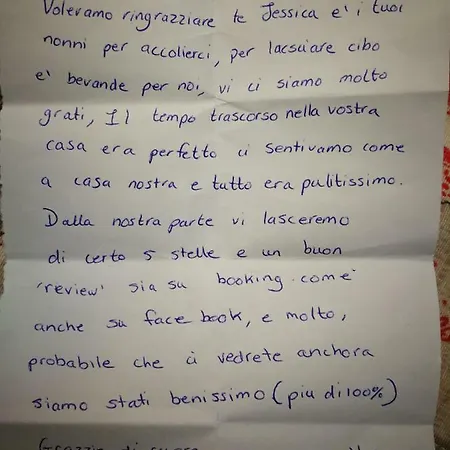 Volevamo ringrazziare te Jessica e' i tuoi
nonni per accolierci, per lacsuiare cibo
e' bevande per noi, vi ci siamo molto
grati, Il tempo trascorso nella vostra
casa era perfetto ci sentivamo come
a casa nostra e tutto era pulitissimo.
Dalla nostra parte vi lasceremo
di certo 5 stelle e un buon
'review' sia su booking.come
anche su face book, e molto,
probabile che ci vedrete anchora
siamo stati benissimo (piu di 100%)